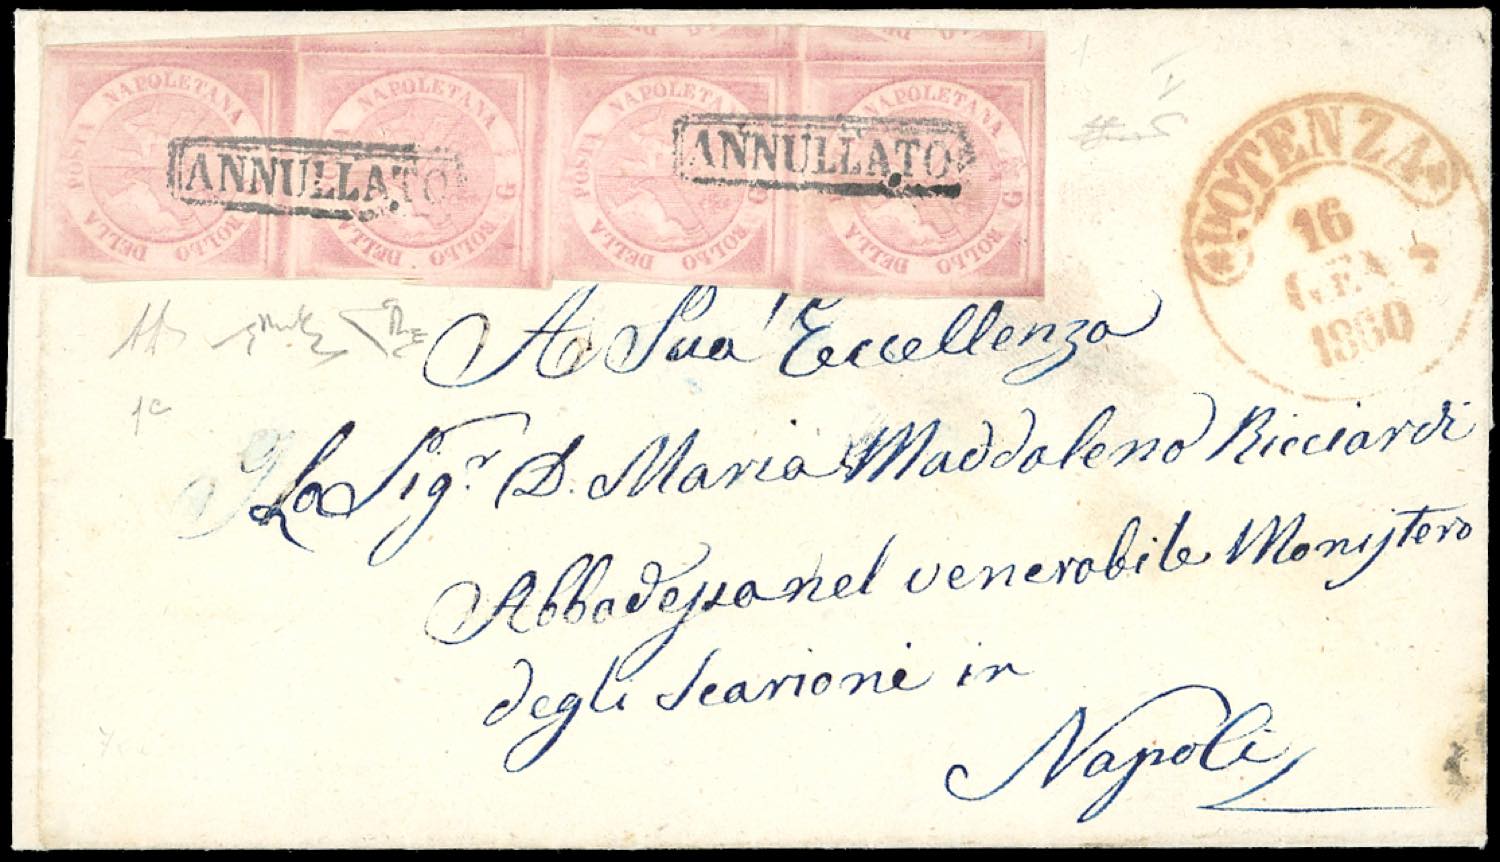 POSTA NAPOLETANA G DELLA ROLLO
POSTA NAPOLETANA G DELLA ROLLO
POSTA NAPOLETANA G DELLA ROLLO
POSTA NAPOLETANA G DELLA ROLLO
ANNULLATO
ANNULLATO
POTENZA
16
GEN
1860
A Sua Eccellenza
La Sig.r D. Maria Maddalena Ricciardi
Abbadessa nel venerabile Monistero
degli Scarioni in
Napoli